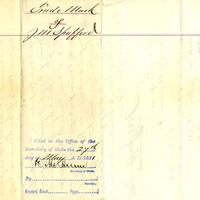 Trade Mark
of
J. M. Spafford
Filed in the Office of the
Secretary of State the 27th
day of May A. D. 1881
Secretary of State.
By
Deputy.
Record Book Page